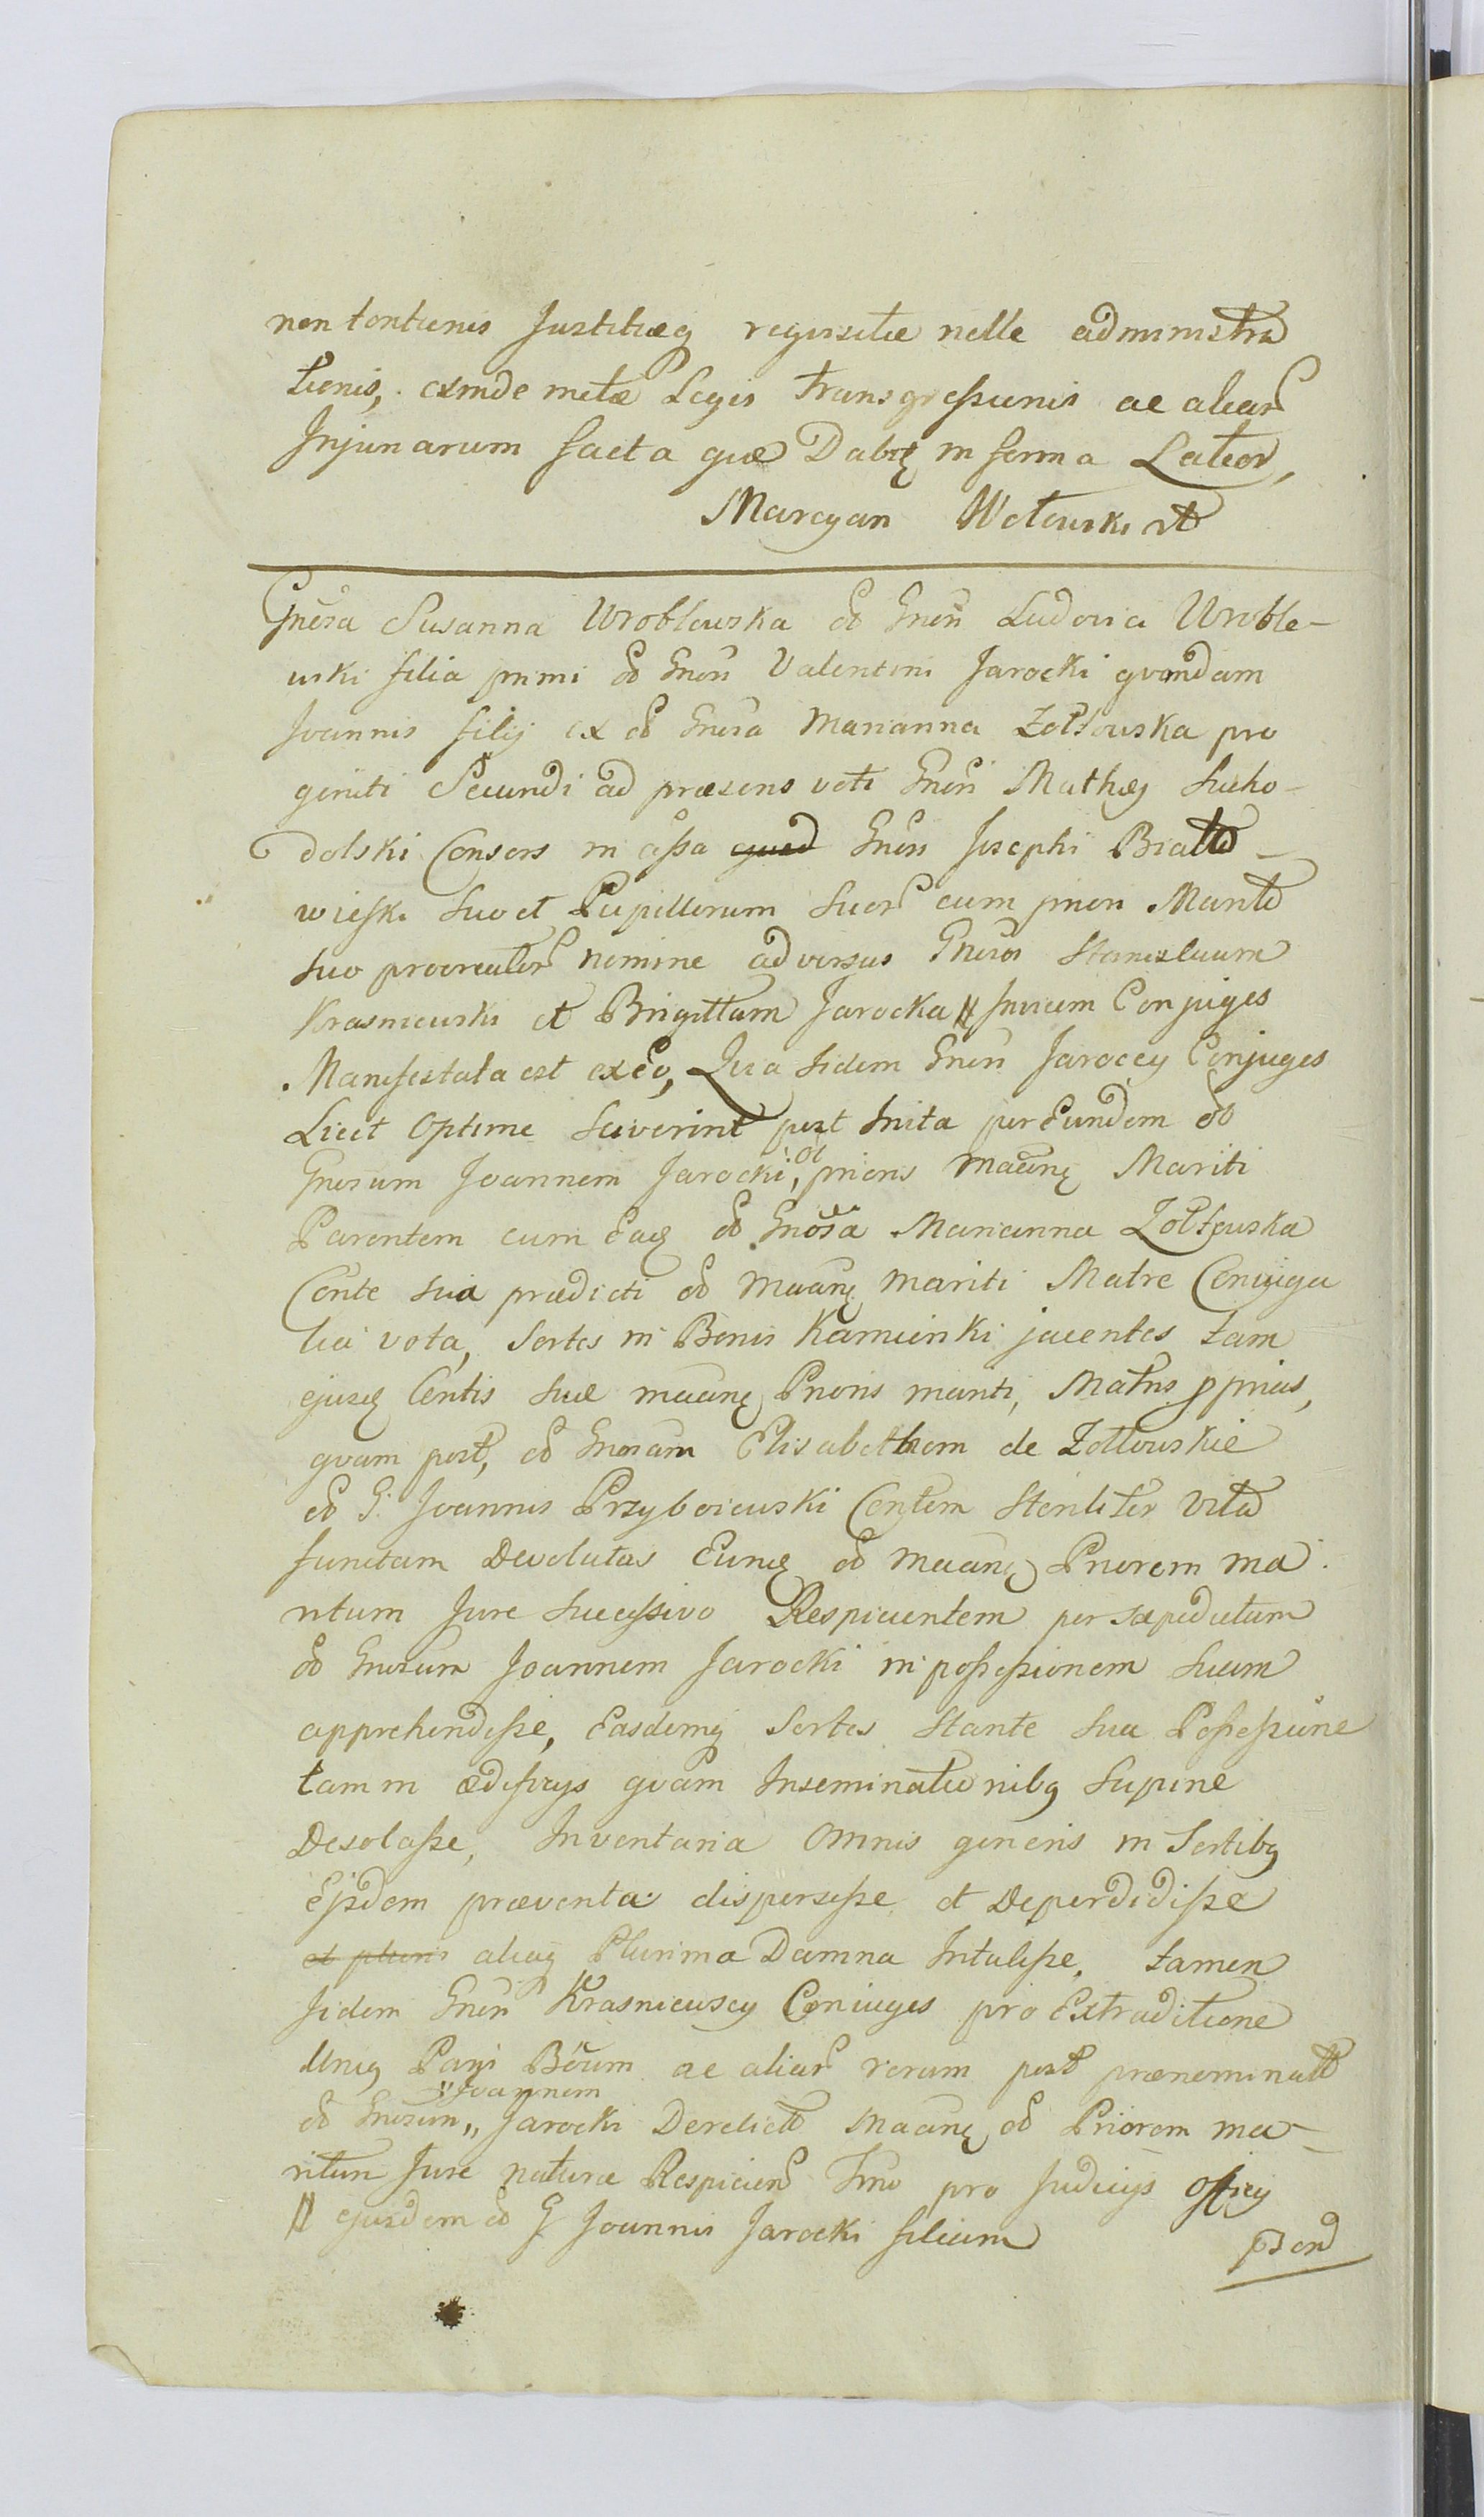 non contienis Justitiæq reqvisitæ nelle administra
tionis, exinde metæ Legis transgreſsionis ac aliar
Injuriarum facta quæ Dabit in forma Lator,
Marcyan Wołowski
Gnosa Susanna Wroblewska olo Gnosi Ludovici Wroble-
wski filia primi olo Gnosi Valentini Jarocki qvondam
Joannis filij ex olo Gnosa Marianna Zołtowska pro
geniti Secundi ad præsens voti Gnosi Mathæj Sucho-
dolski Consors in aſsa qued Gnosi Josephi Biało-
wieſki suo et Pupillorum suor cum priori Marito
suo procreator nomine adversus Gnosos Stanislaum
Krasniewski et Brigittam Jarocka # Invicem Conjuges
Manifestata est ex eo, Qvia Iidem Gnosi Jaroccy Conjuges
Licet Optime Sciverint post Inita per Eundem olo
Gnosum Joannem Jarocki, olo prioris Maanę Mariti
Parentem cum Eadę olo Gnosa Marianna Zołtowska
Conte sua prædicti olo Maanę mariti Matre Coniuga
lia vota, Sortes in Bonis Kamienki jacentes tam
ejusdę Contis suæ maanę Prioris mariti, Matris pprias,
qvam post, olo Gnosam Elisabetham de Zołtowskie
olo G. Joannis Przyboiewski Contem Steriliter vita
functam Devolutas Eundę olo maanę Priorem ma
ritum Jure Succeſsivo Respicientem per sæpedictum
olo Gnosum Joannem Jarocki in poſseſsionem Suam
apprehendiſse, Easdemq Sortes Stante sua Poſseſsione
tam in ædificijs qvam Inseminationibq Supine
Desolaſse, Inventaria Omnis generis in Sortibq
Ejsdem præventa disperseſse et Deperdidiſse
et pluri aliaq Plurima Damna Intuliſse, tamen
Iidem Gnosi Krasniewscy Coniuges pro Extraditione
Uniq Pagi Boum ac aliar rerum post prænominat
olo Gnosum „Joannem„ Jarocki Derelict Maanę olo Priorem ma-
ritum Jure naturæ Respicien Tmo pro Judicijs Officij
# ejusdem olo G Joannis Jarocki filiam